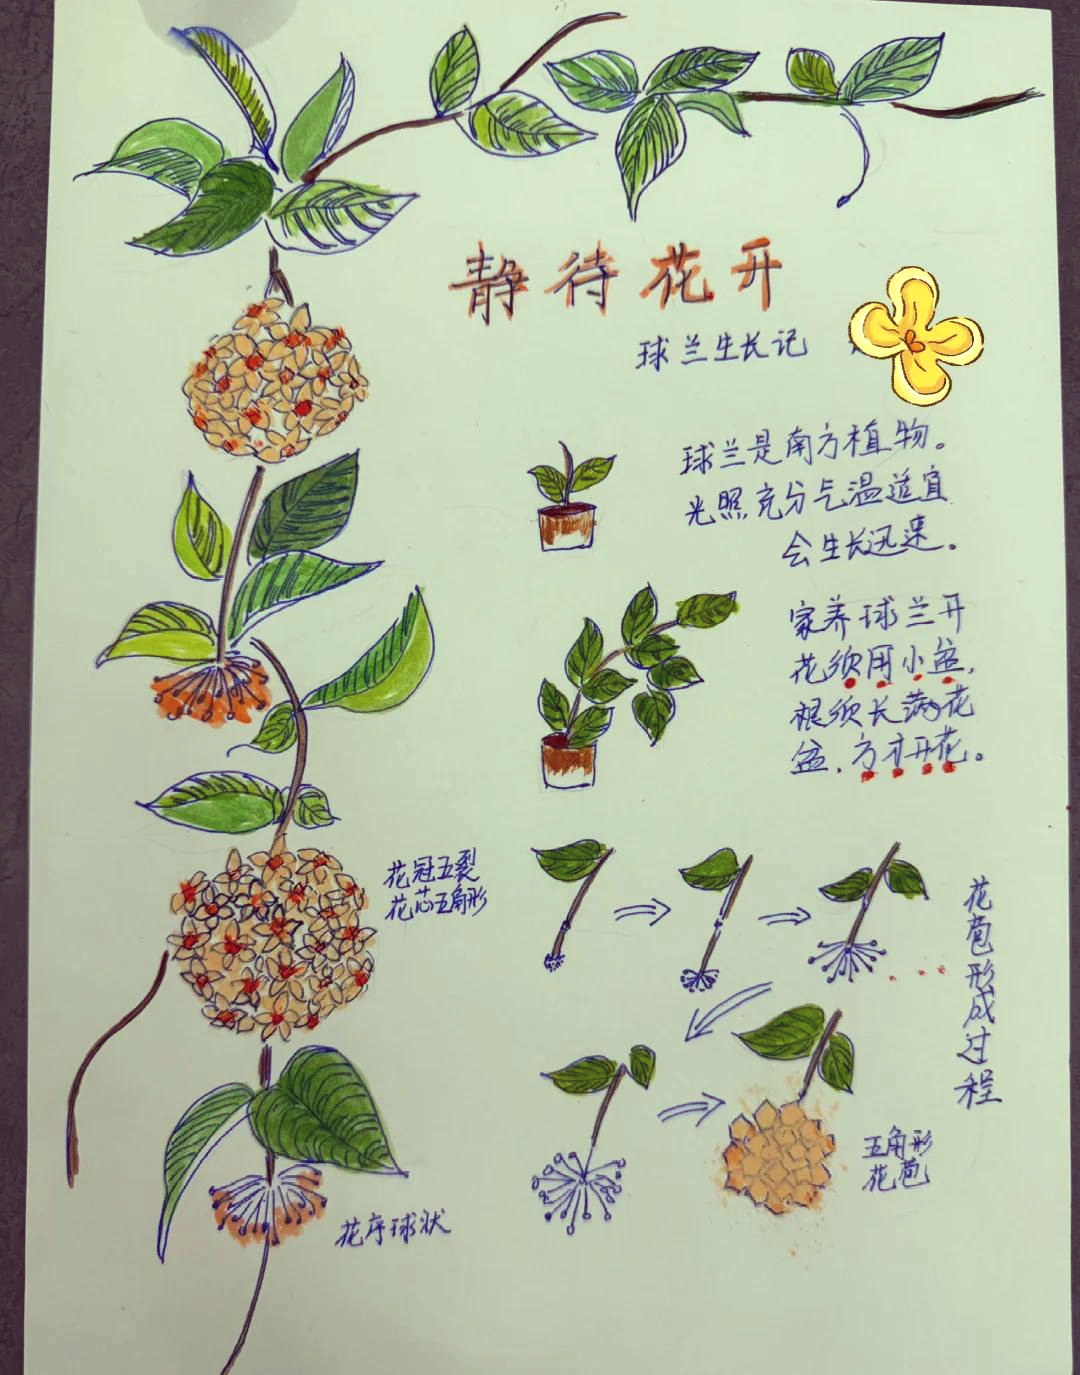 静待花开
球兰生长记
球兰是南方植物。
光照充分气温适宜
会生长迅速。
家养球兰开
花须用小盆,
根须长满花
盆,方才开花。
花冠五裂
花芯五角形
花苞形成过程
五角形
花苞
花序球状